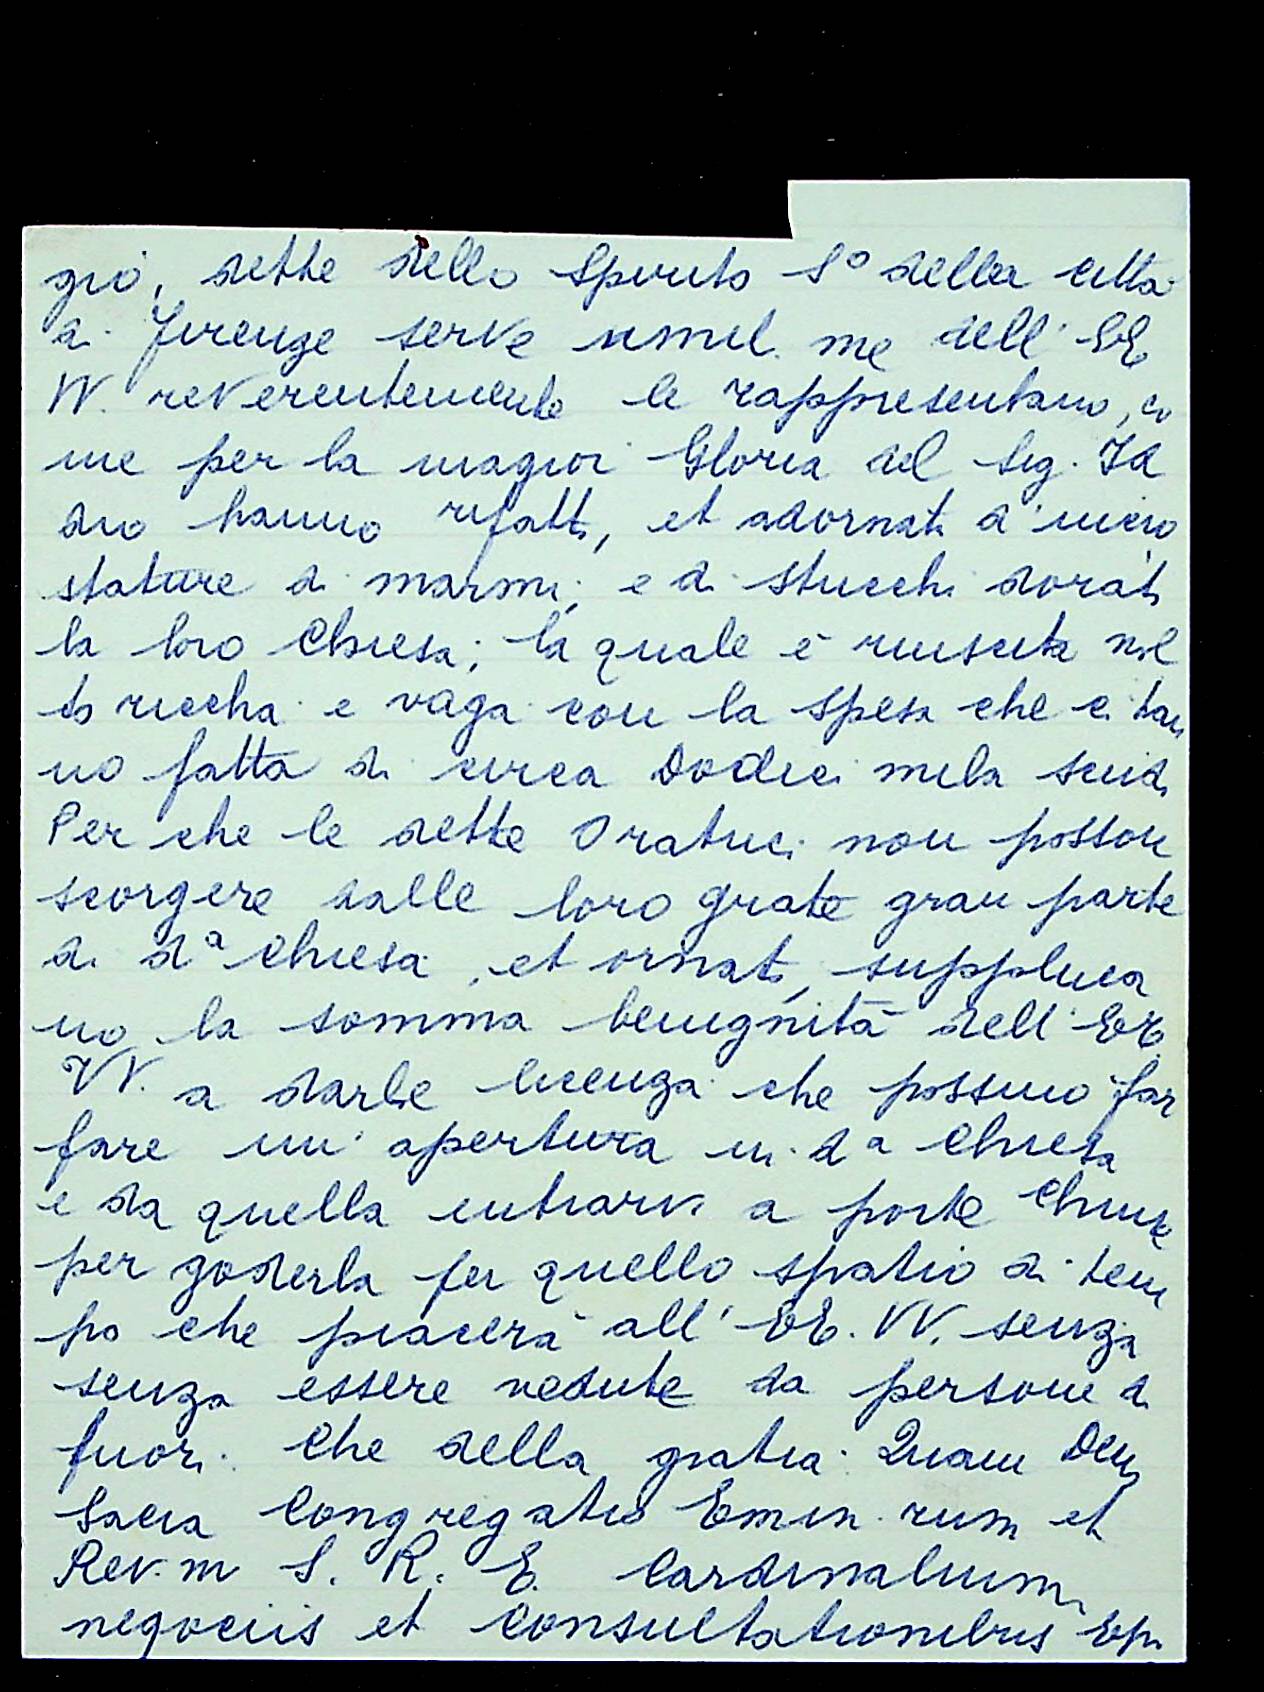 gio, dette dello Spirito S° della città
di Firenze serve umil. me dell' EE
VV. reverentemente le rappresentano, co
me per la magior Gloria del Sig. Id
dio hanno rifatti, et adornati d'incro
stature di marmi, e di stucchi dorati
la loro Chiesa; la quale è riuscita mol
to riccha e vaga con la spesa che ci han
no fatta di circa Dodici mila scudi
Per che le dette Oratrici non posson
scorgere dalle loro grate gran parte
di dª Chiesa, et ornati, supplica
no la somma benignità dell' EE.
VV. a darle licenza che possino far
fare un' apertura in dª Chiesa
e da quella entrarvi a porte Chiuse
per goderla per quello spatio di tem
po che piacerà all' EE. VV. senza
senza essere vedute da persone di
fuori. Che della gratia. Quam Deus
Sacra Congregatio Emin. rum et
Rev. m S. R. E. Cardinalium
negociis et Consultationibus Ep.